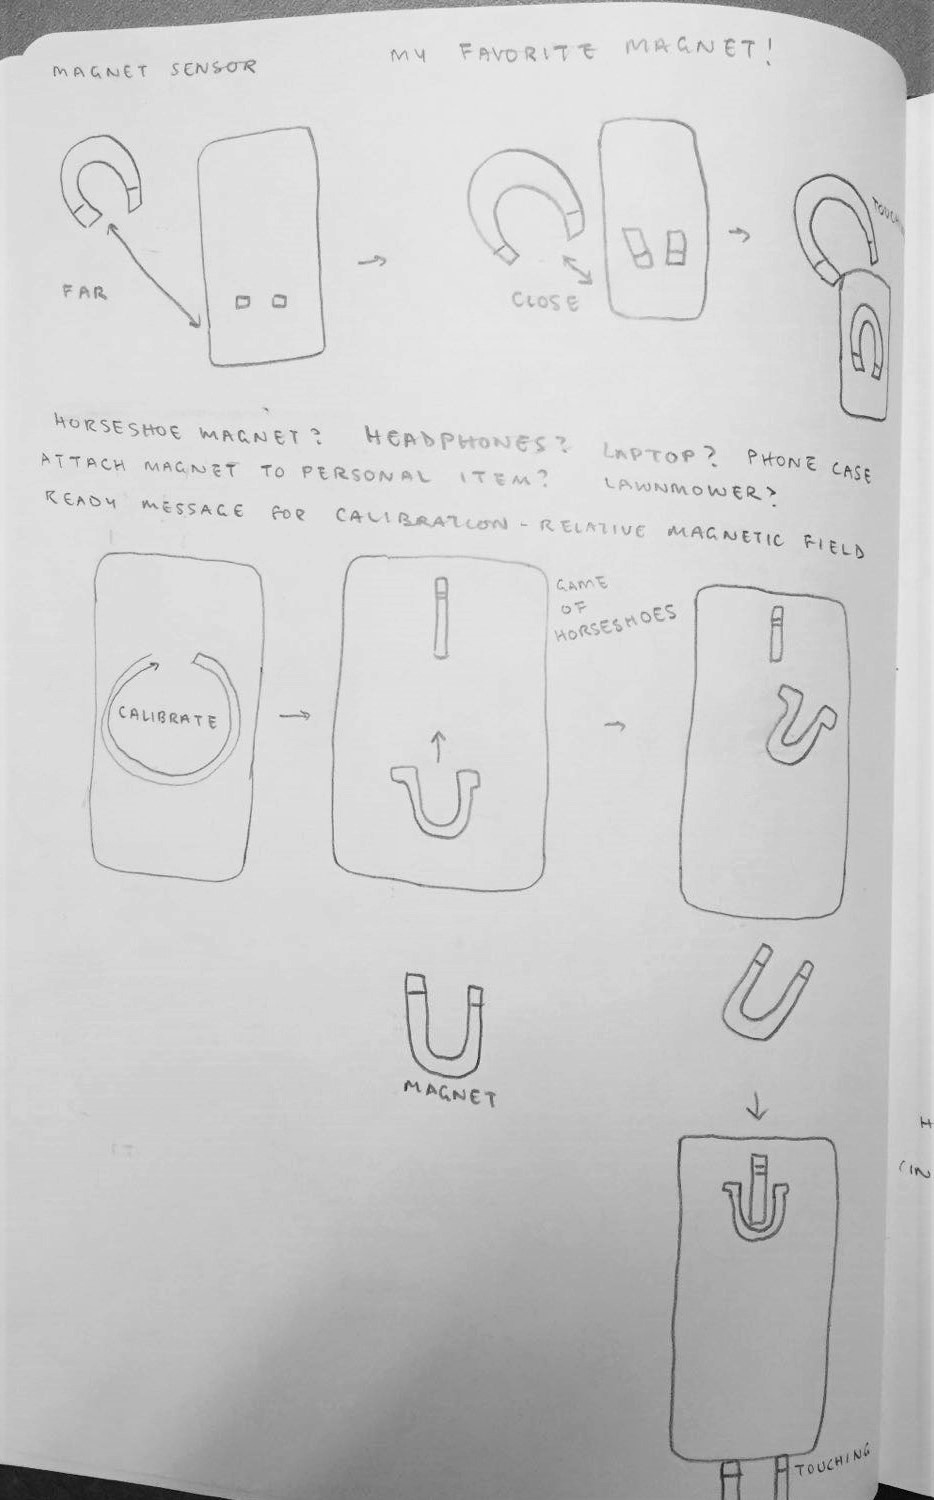 MAGNET SENSOR
MY FAVORITE MAGNET!
FAR
CLOSE
HORSESHOE MAGNET? HEADPHONES? LAPTOP? PHONE CASE
ATTACH MAGNET TO PERSONAL ITEM? LAWNMOWER?
READY MESSAGE FOR CALIBRATION - RELATIVE MAGNETIC FIELD
CALIBRATE
GAME
OF
HORSESHOES
MAGNET
TOUCHING